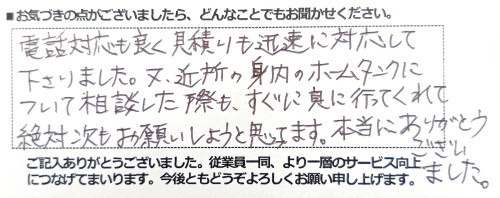 ■お気づきの点がございましたら、どんなことでもお聞かせください。
電話対応も良く見積りも迅速に対応して
下さりました。又、近所の身内のホームタンクに
ついて相談した際も、すぐに見に行ってくれて
絶対次もお願いしようと思ってます。本当にありがとう
ござい
ました。
ご記入ありがとうございました。従業員一同、より一層のサービス向上
につなげてまいります。今後ともどうぞよろしくお願い申し上げます。